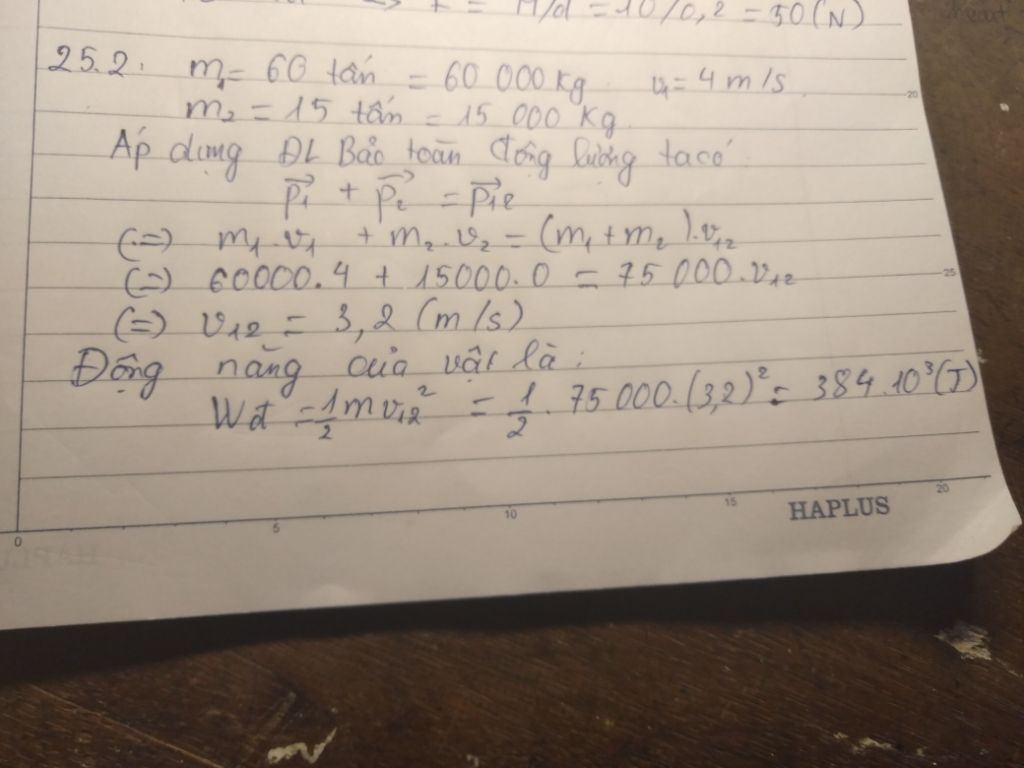 => F = A/d = 10/0,2 = 50 (N)
25.2. m₁ = 60 tấn = 60 000 kg v₁ = 4 m/s
20
m₂ = 15 tấn = 15 000 Kg
Áp dụng ĐL Bảo toàn động lượng ta có
p₁⃗ + p₂⃗ = p₁₂⃗
(=) m₁.v₁ + m₂.v₂ = (m₁+m₂).v₁₂
25
(=) 60000.4 + 15000.0 = 75 000.v₁₂
(=) v₁₂ = 3,2 (m/s)
Động năng của vật là:
Wđ = 1/2 m v₁₂² = 1/2 . 75 000.(3,2)² = 384.10³ (J)
0 5 10 15 20
HAPLUS